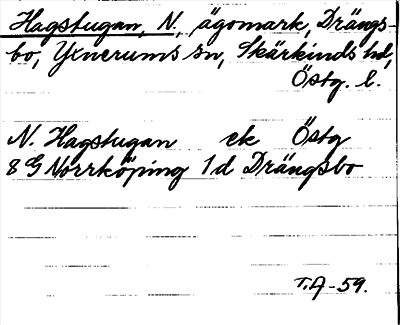 Hagstugan, N., ägomark, Drängs-
bo, Yxnerums sn, Skärkinds hd,
Östg. l.
N. Hagstugan ek Östg
8 G Norrköping 1d Drängsbo
T.A-59.